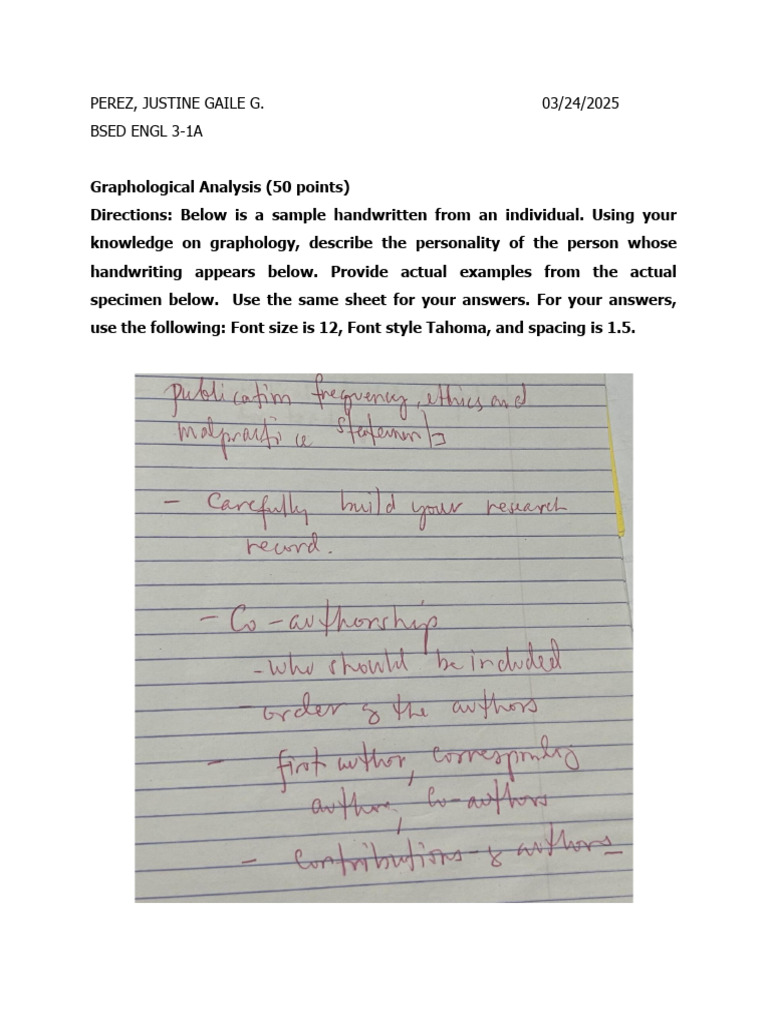 PEREZ, JUSTINE GAILE G. 03/24/2025
BSED ENGL 3-1A
Graphological Analysis (50 points)
Directions: Below is a sample handwritten from an individual. Using your
knowledge on graphology, describe the personality of the person whose
handwriting appears below. Provide actual examples from the actual
specimen below. Use the same sheet for your answers. For your answers,
use the following: Font size is 12, Font style Tahoma, and spacing is 1.5.
Publication frequency, ethics and
malpractice statements
- Carefully build your research
record.
- Co-authorship
- who should be included
- order of the authors
- first author, corresponding
author, Co-authors
- Contributions of authors